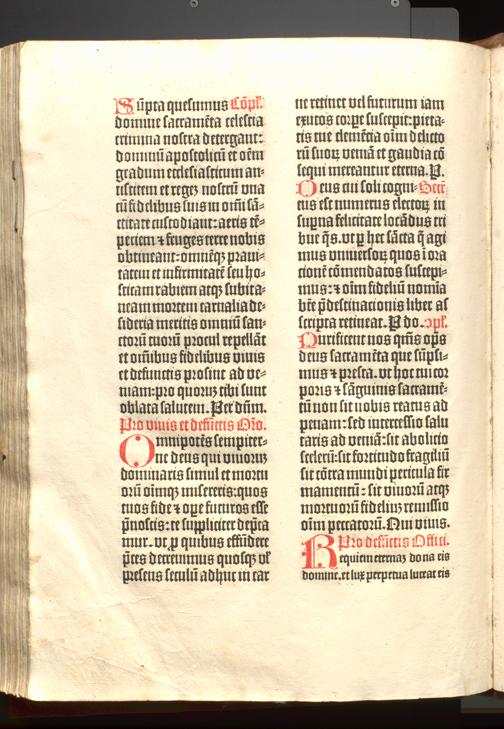 Sūpta quesumus Cōpl'.
domine sacramēta celestia
crimina nostra detergant:
domnūʒ apostolicū et oēm
gradum ecclesiasticum an-
tistitem et regeʒ nostrū vna
cū fidelibus suis in oīni sā-
ctitate custodiant: aeris tē-
periem ⁊ fruges terre nobis
obtineant: omnēqʒ praui-
tatem et infirmitatē seu ho-
sticam rabiem atqʒ subita-
neam mortem carnalia de-
sideria meritis omniū san-
ctorū tuorū procul repellāt
et oīnibus fidelibus viuis
et defunctis prosint ad ve-
niam: pro quoruʒ tibi sunt
oblata salutem. Per dūm.
Pro viuis et defūctis Oŕo.
Omnipotēs sempiter-
ne deus qui viuoruʒ
dominaris simul et mortu
orū oīmqʒ misereris: quos
tuos fide ⁊ ope futuros esse
p̄noscis: te suppliciter dep̄ca
mur. vt ꝓ quibus effūdere
p̄ces decreuimus quosqʒ vl'
presens seculū adhuc in car
ne retinet vel futurum iam
exutos corꝑe suscepit: pieta-
tis tue clemētia oīm delicto
rū suoꝝ veniā et gaudia cō
sequi mereantur eterna. P.
Deus cui soli cogni- Secr̄
tus est numerus electoꝝ in
suꝑna felicitate locādus tri
bue q̄s. vt ꝑ het sācta q̄ agi
mus vniuersoꝝ quos ī ora
tionē cōmendatos suscepi-
mus: ⁊ oīm fideliū nomīa
bt̄e p̄destinacionis liber as
scripta retineat. P do. ↄpl'.
Purificent nos qm̄s op̄s
deus sacramēta que sūpsi-
mus ⁊ presta. vt hoc tui cor
poris ⁊ sāguinis sacramē-
tū non sit nobis reatus ad
penam: sed intercessio salu
taris ad veniā: sit ablutio
scelerū: sit fortitudo fragiliū
sit cōtra mundi pericula fir
mamentū: sit viuorū atqʒ
mortuorū fideliuʒ remissio
oīm peccatorū. Qui viuis.
Pro defūctis Offiti.
Requiem eternaʒ dona eis
domine. et lux perpetua luceat eis